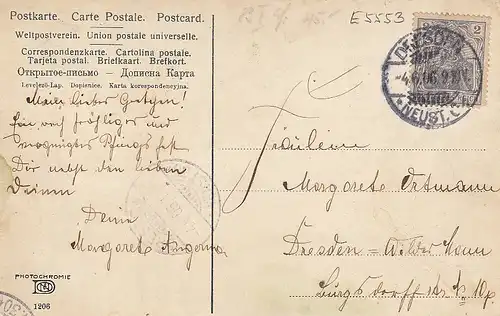 Postkarte. Carte Postale. Postcard.
Weltpostverein. Union postale universelle.
Correspondenzkarte. Cartolina postale.
Tarjeta postal. Briefkaart. Brefkort.
Открытое-письмо — Дописна Карта
Levelező-Lap. Dopisnice. Karta korespondencyjna.
Mein lieber Gretchen!
Ein recht fröhliges und
vergnügtes Pfingstfest
Dir nebst den lieben
Deinen
Deine
Margarete
PHOTOCHROMIE
1206
E5553
2
DRESDEN
-4.6.06.9
NEUST.
Fräulein
Margarete Ortmann
Dresden = Wilder Mann